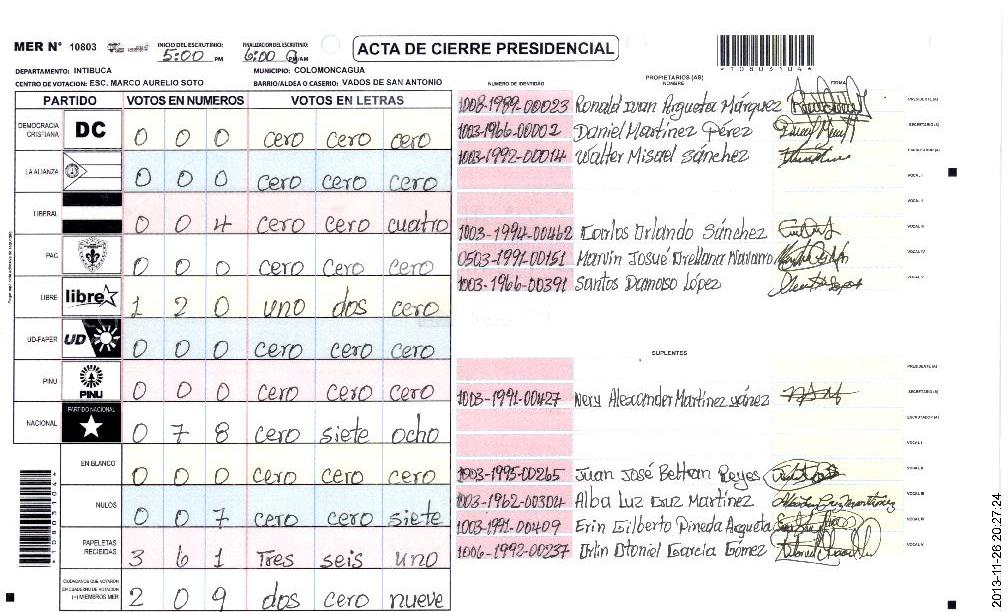 MER Nº 10803
INICIO DEL ESCRUTINIO: 5:00 PM
FINALIZACION DEL ESCRUTINIO: 6:00 PM/AM
ACTA DE CIERRE PRESIDENCIAL
10803104
DEPARTAMENTO: INTIBUCA MUNICIPIO: COLOMONCAGUA
CENTRO DE VOTACION: ESC. MARCO AURELIO SOTO BARRIO/ALDEA O CASERIO: VADOS DE SAN ANTONIO
PARTIDO VOTOS EN NUMEROS VOTOS EN LETRAS
DEMOCRACIA CRISTIANA DC 0 0 0 cero cero cero
LA ALIANZA 0 0 0 cero cero cero
LIBERAL 0 0 4 cero cero cuatro
PAC 0 0 0 cero cero cero
LIBRE libre 1 2 0 uno dos cero
UD-FAPER UD 0 0 0 cero cero cero
PINU PINU 0 0 0 cero cero cero
NACIONAL PARTIDO NACIONAL 0 7 8 cero siete ocho
EN BLANCO 0 0 0 cero cero cero
NULOS 0 0 7 cero cero siete
PAPELETAS RECIBIDAS 3 6 1 Tres seis uno
CIUDADANOS QUE VOTARON EN CUADERNO DE VOTACION (+) MIEMBROS MER 2 0 9 dos cero nueve
10803104
NUMERO DE IDENTIDAD PROPIETARIOS (AS) NOMBRE FIRMA
1008-1999-00023 Ronald Ivan Argueta Márquez PRESIDENTE (A)
1003-1966-00002 Daniel Martínez Pérez SECRETARIO (A)
1003-1992-00014 Walter Misael Sánchez ESCRUTADOR (A)
VOCAL I
VOCAL II
1003-1994-00462 Carlos Orlando Sánchez VOCAL III
0503-1991-00151 Marvin Josué Orellana Navarro VOCAL IV
1003-1966-00391 Santos Damaso López VOCAL V
SUPLENTES
PRESIDENTE (A)
1003-1991-00427 Nery Alexander Martínez yánez SECRETARIO (A)
ESCRUTADOR (A)
VOCAL I
1003-1995-00265 Juan José Beltran Reyes VOCAL II
1003-1962-00304 Alba Luz Cruz Martínez VOCAL III
1003-1991-00409 Erin Gilberto Pineda Argueta VOCAL IV
1006-1992-00237 Orlin Otoniel García Gómez VOCAL V
2013-11-26 20:27:24